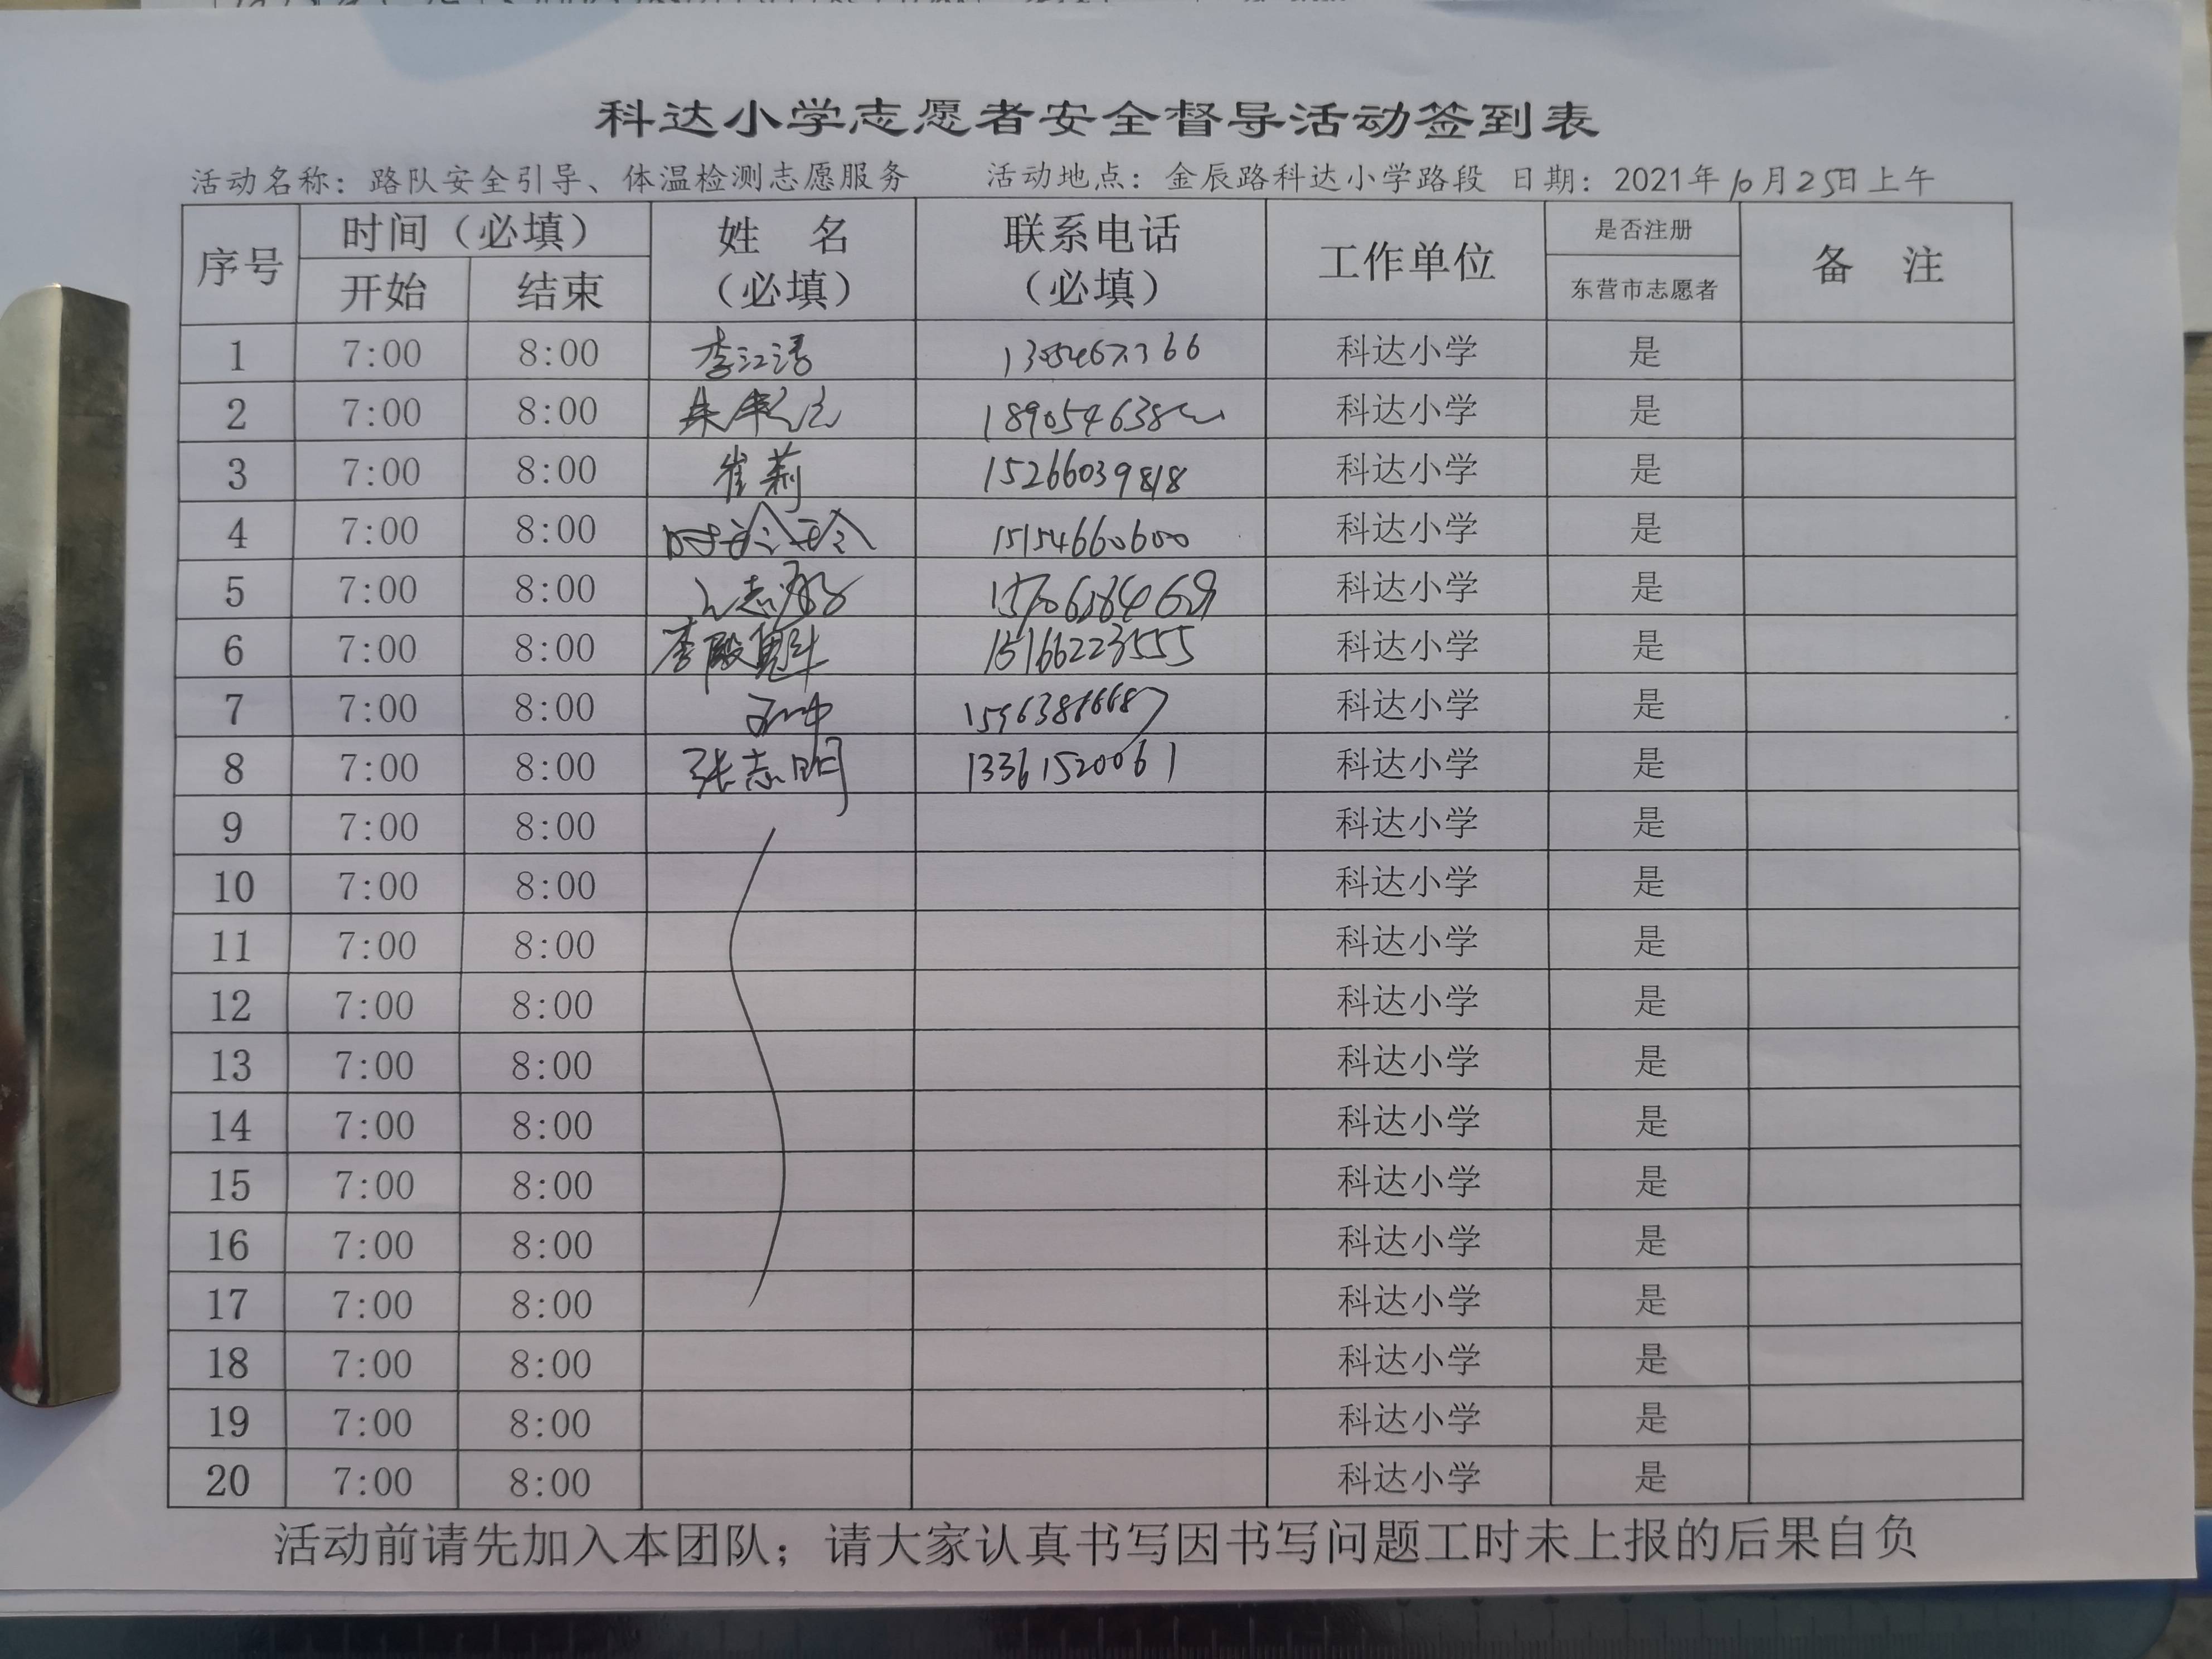 科达小学志愿者安全督导活动签到表
活动名称：路队安全引导、体温检测志愿服务 活动地点：金辰路科达小学路段 日期：2021年10月25日上午
序号 时间（必填） 姓 名（必填） 联系电话（必填） 工作单位 是否注册 备 注
开始 结束 东营市志愿者
1 7:00 8:00 李江涛 科达小学 是
2 7:00 8:00 科达小学 是
3 7:00 8:00 崔莉 15266039818 科达小学 是
4 7:00 8:00 15154660600 科达小学 是
5 7:00 8:00 科达小学 是
6 7:00 8:00 李殿魁 15166223555 科达小学 是
7 7:00 8:00 科达小学 是
8 7:00 8:00 张志明 13361520061 科达小学 是
9 7:00 8:00 科达小学 是
10 7:00 8:00 科达小学 是
11 7:00 8:00 科达小学 是
12 7:00 8:00 科达小学 是
13 7:00 8:00 科达小学 是
14 7:00 8:00 科达小学 是
15 7:00 8:00 科达小学 是
16 7:00 8:00 科达小学 是
17 7:00 8:00 科达小学 是
18 7:00 8:00 科达小学 是
19 7:00 8:00 科达小学 是
20 7:00 8:00 科达小学 是
活动前请先加入本团队；请大家认真书写因书写问题工时未上报的后果自负